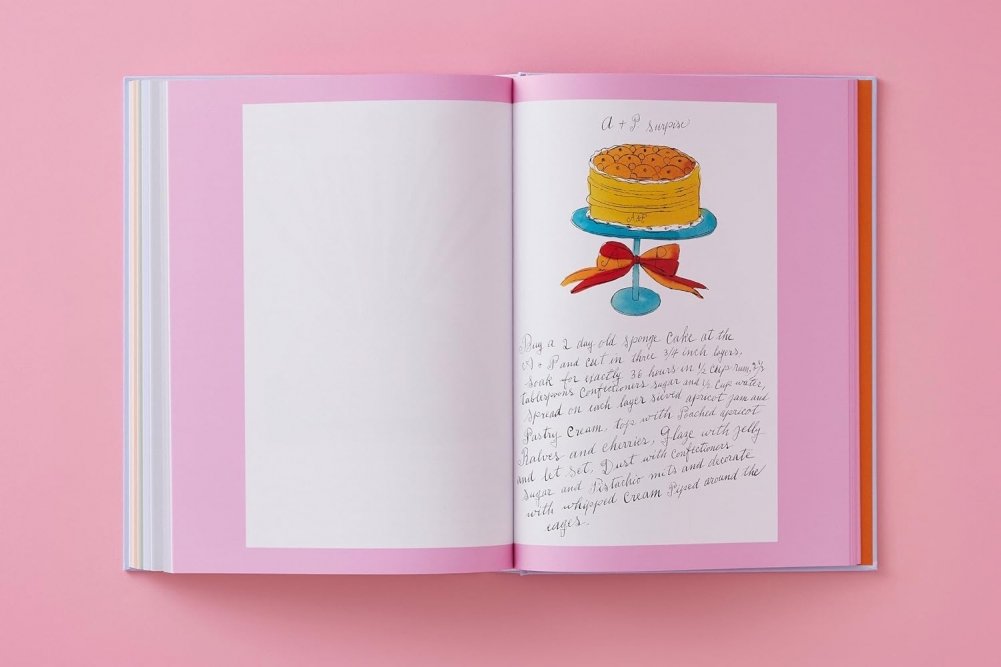 A + P Surprise
A & P
Buy a 2 day old sponge cake at the
A + P and cut in three 3/4 inch layers.
Soak for exactly 36 hours in 1/2 cup rum, 2 2/3
tablespoons Confectioners sugar and 1/2 Cup water,
Spread on each layer sieved apricot jam and
Pastry Cream, top with Poached apricot
Halves and cherries, Glaze with Jelly
and let set, Dust with Confectioners
sugar and Pistachio nuts and decorate
with whipped Cream Piped around the
edges.